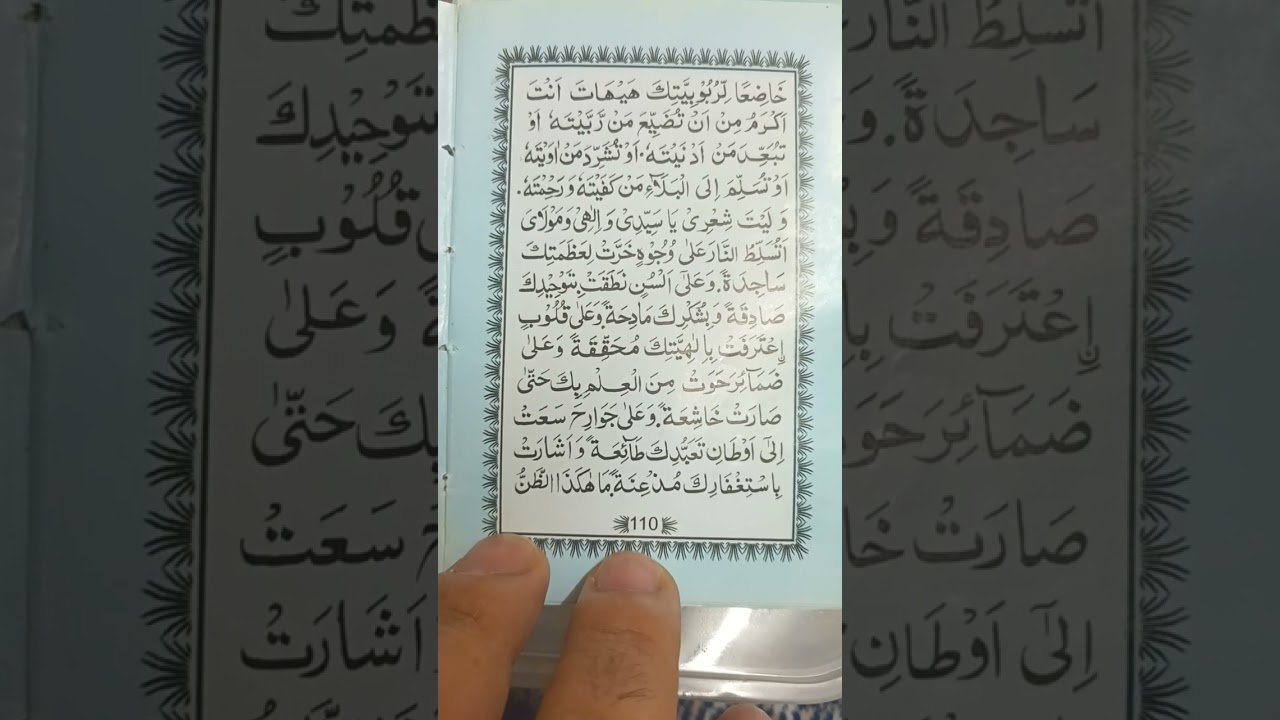 خَاضِعًا لِّرُبُوْبِيَّتِكَ هَيْهَاتَ اَنْتَ
اَكْرَمُ مِنْ اَنْ تُضَيِّعَ مَنْ رَّبَّيْتَهٗ اَوْ
تُبَعِّدَ مَنْ اَدْنَيْتَهٗ. اَوْ تُشَرِّدَ مَنْ اٰوَيْتَهٗ
اَوْ تُسَلِّمَ اِلَى الْبَلَآءِ مَنْ كَفَيْتَهٗ وَ رَحِمْتَهٗ.
وَ لَيْتَ شِعْرِىْ يَا سَيِّدِىْ وَ اِلٰهِىْ وَ مَوْلَاىَ
اَتُسَلِّطُ النَّارَ عَلٰى وُجُوْهٍ خَرَّتْ لِعَظَمَتِكَ
سَاجِدَةً. وَ عَلٰٓى اَلْسُنٍ نَطَقَتْ بِتَوْحِيْدِكَ
صَادِقَةً وَ بِشُكْرِكَ مَادِحَةً. وَ عَلٰى قُلُوْبٍ
اِعْتَرَفَتْ بِاِلٰهِيَّتِكَ مُحَقِّقَةً وَ عَلٰى
ضَمَآئِرَ حَوَتْ مِنَ الْعِلْمِ بِكَ حَتّٰى
صَارَتْ خَاشِعَةً. وَ عَلٰى جَوَارِحَ سَعَتْ
اِلٰٓى اَوْطَانِ تَعَبُّدِكَ طَآئِعَةً وَ اَشَارَتْ
بِاسْتِغْفَارِكَ مُذْعِنَةً. مَا هٰكَذَا الظَّنُّ
110